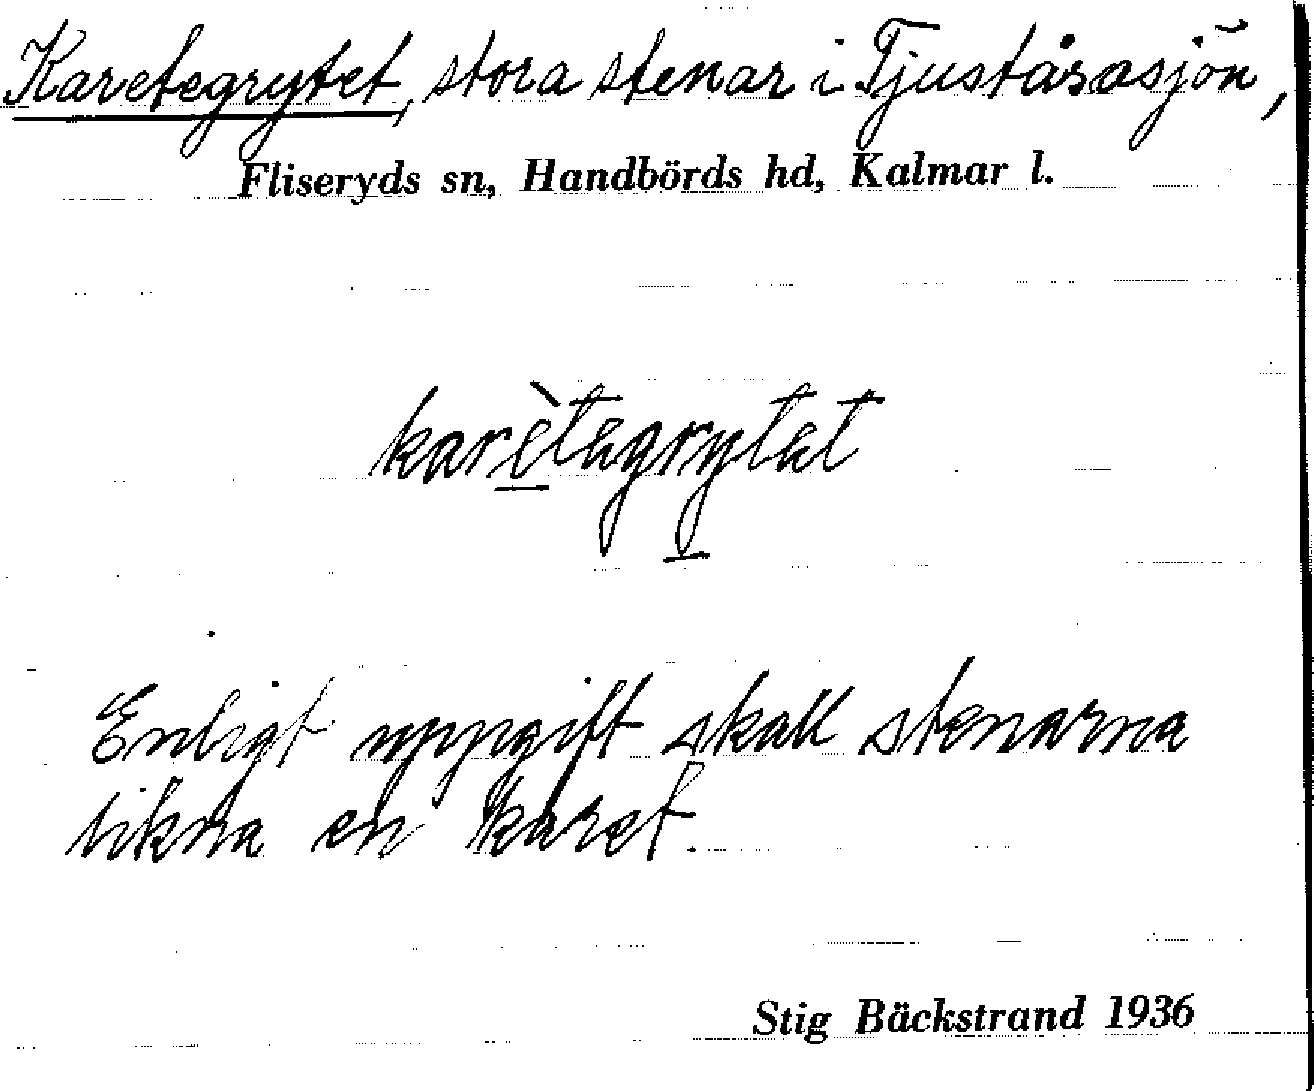 Karetegrytet, stora stenar i Tjuståsasjön,
Fliseryds sn, Handbörds hd, Kalmar l.
karètegrytet
Enligt uppgift skall stenarna
likna en karet.
Stig Bäckstrand 1936